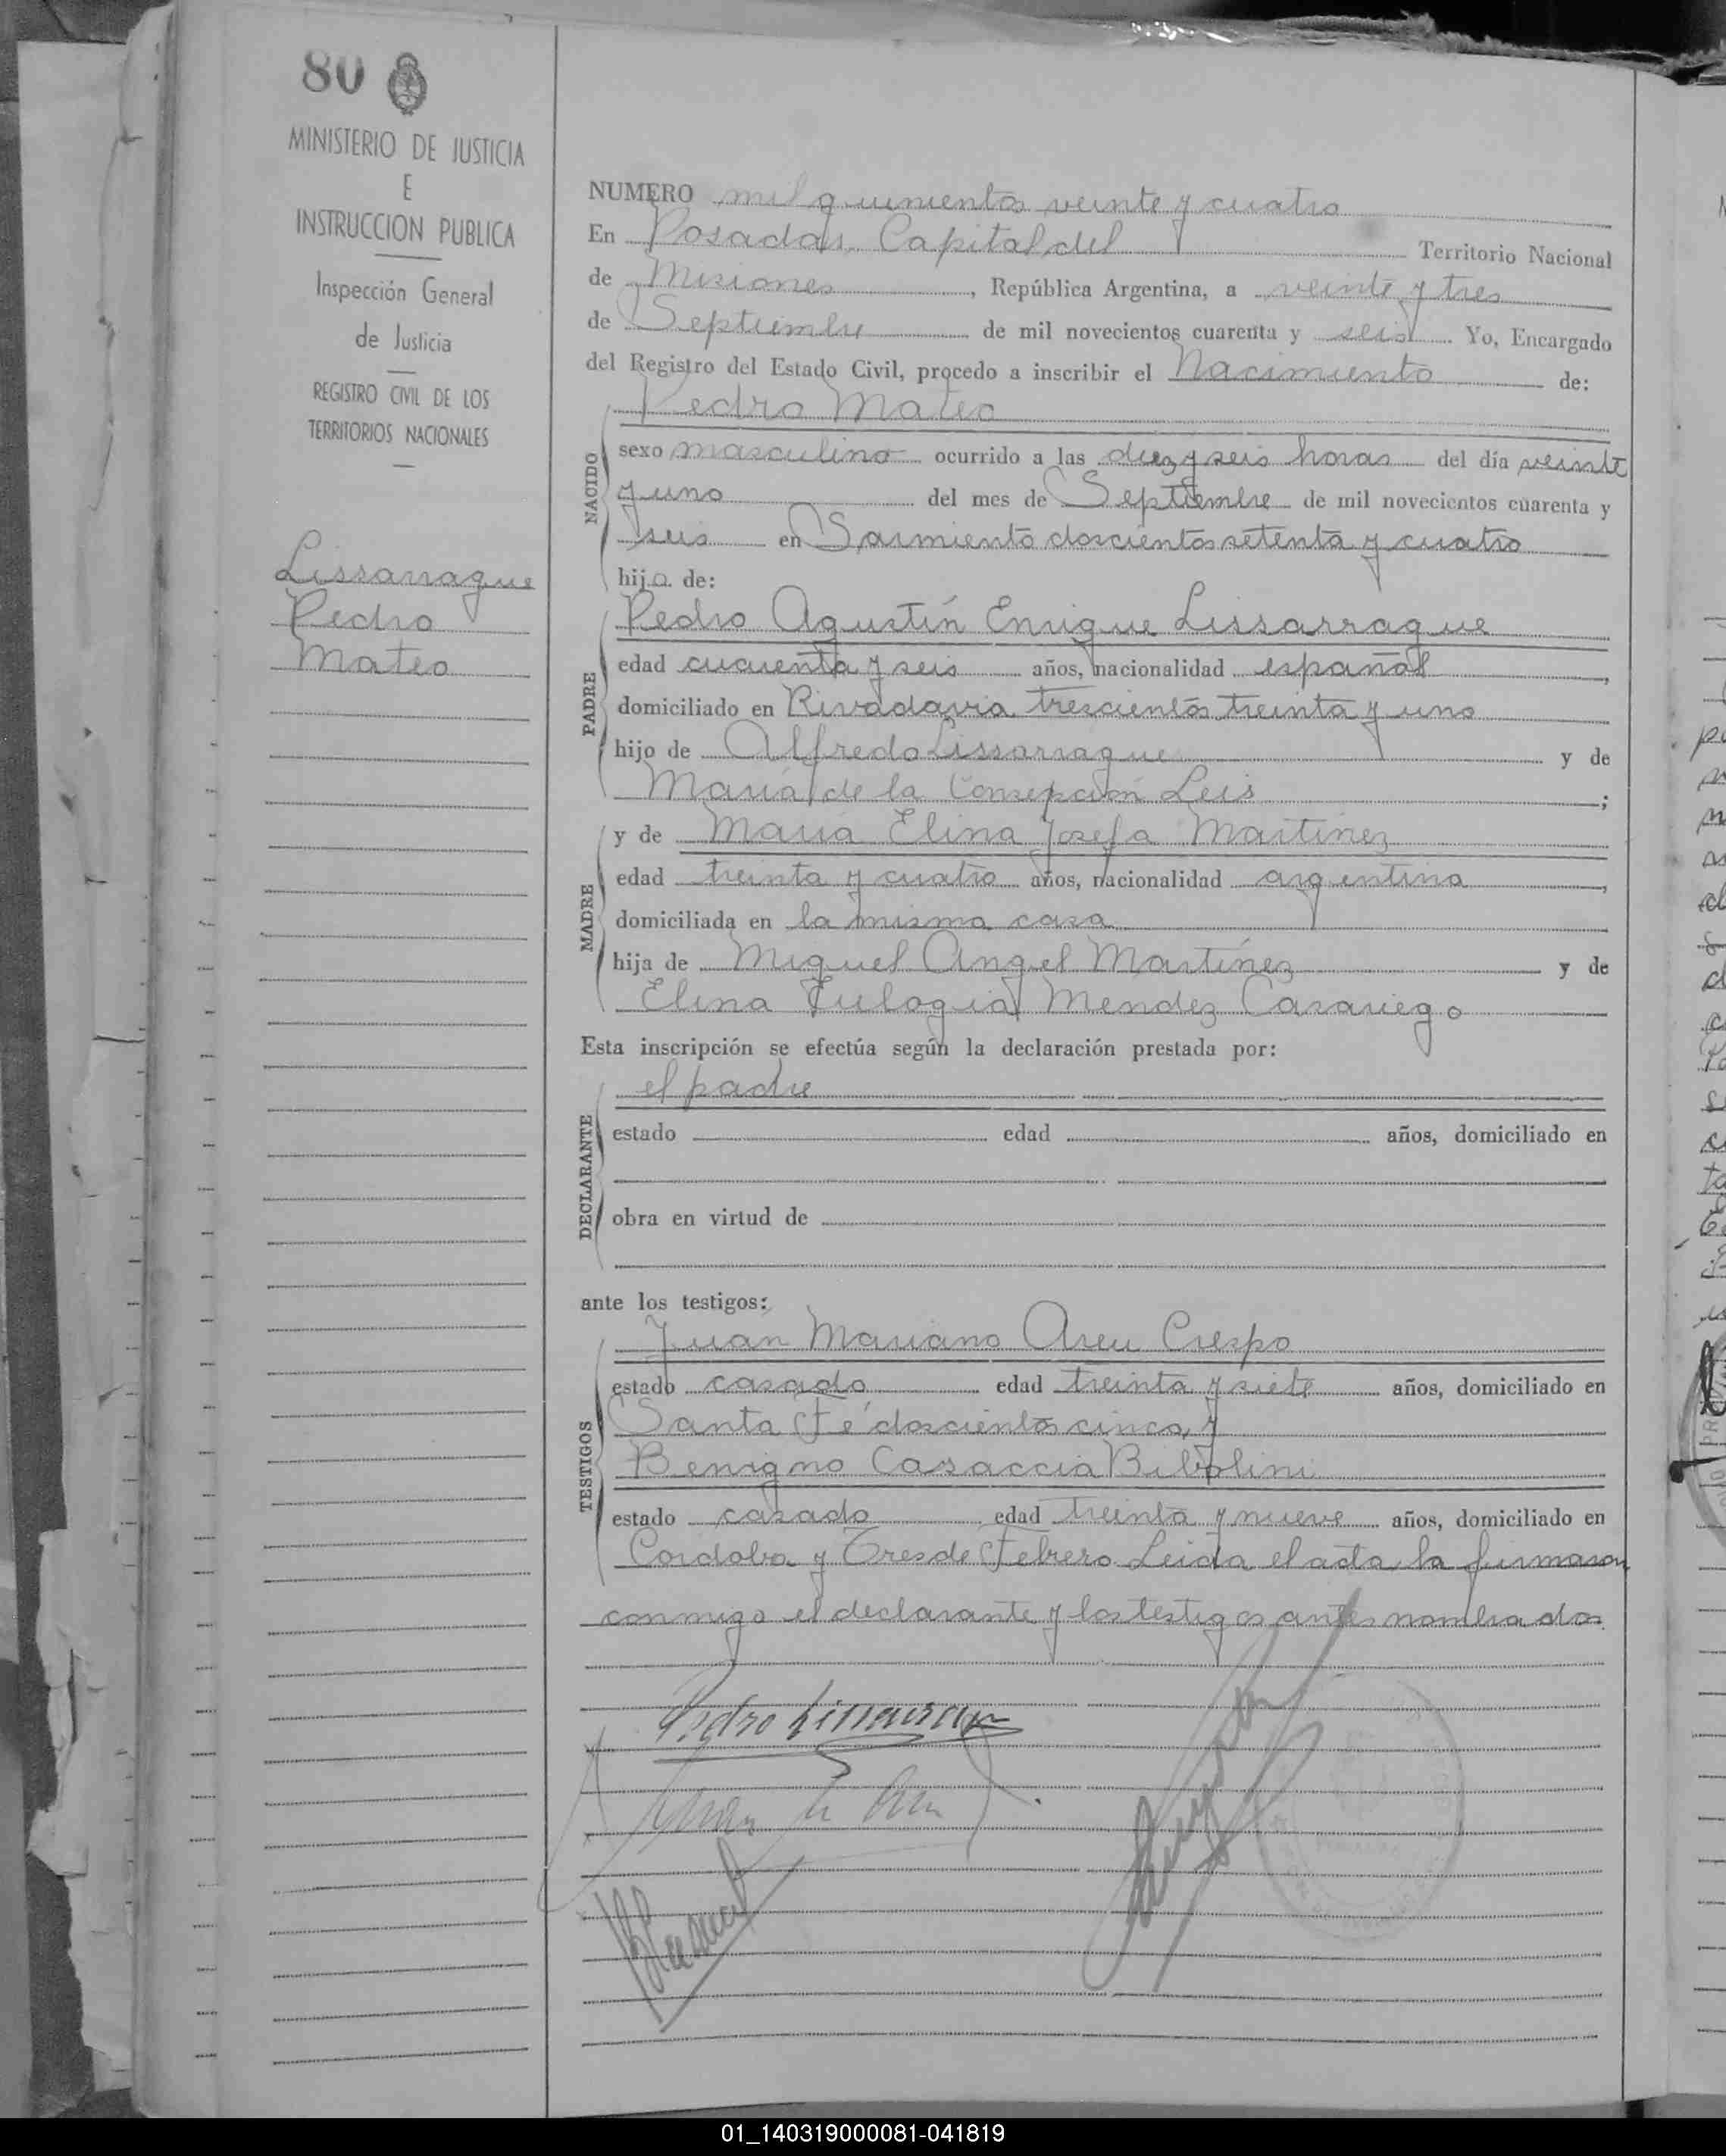 80
MINISTERIO DE JUSTICIA
E
INSTRUCCION PUBLICA
Inspección General
de Justicia
REGISTRO CIVIL DE LOS
TERRITORIOS NACIONALES
Lissarrague
Pedro
Mateo
NUMERO mil quinientos veinte y cuatro
En Posadas, Capital del Territorio Nacional
de Misiones, República Argentina, a veinte y tres
de Septiembre de mil novecientos cuarenta y seis Yo, Encargado
del Registro del Estado Civil, procedo a inscribir el Nacimiento de:
Pedro Mateo
NACIDO
sexo masculino ocurrido a las diez y seis horas del día veinte
y uno del mes de Septiembre de mil novecientos cuarenta y
seis en Sarmiento doscientos setenta y cuatro
hijo de:
PADRE
Pedro Agustín Enrique Lissarrague
edad cuarenta y seis años, nacionalidad español,
domiciliado en Rivadavia trescientos treinta y uno
hijo de Alfredo Lissarrague y de
María de la Consepción Leis;
MADRE
y de María Elina Josefa Martinez
edad treinta y cuatro años, nacionalidad argentina,
domiciliada en la misma casa
hija de Miguel Angel Martínez y de
Elina Eulogia Mendez Casariego
Esta inscripción se efectúa según la declaración prestada por:
DECLARANTE
el padre
estado edad años, domiciliado en
obra en virtud de
ante los testigos:
TESTIGOS
Juan Mariano Areu Crespo
estado casado edad treinta y siete años, domiciliado en
Santa Fé doscientos cinco, y
Benigno Casaccia Bibolini
estado casado edad treinta y nueve años, domiciliado en
Cordoba y Tres de Febrero. Leida el acta, la firmaron
conmigo el declarante y los testigos antes nombrados.
Pedro Lissarrague
01_140319000081-041819